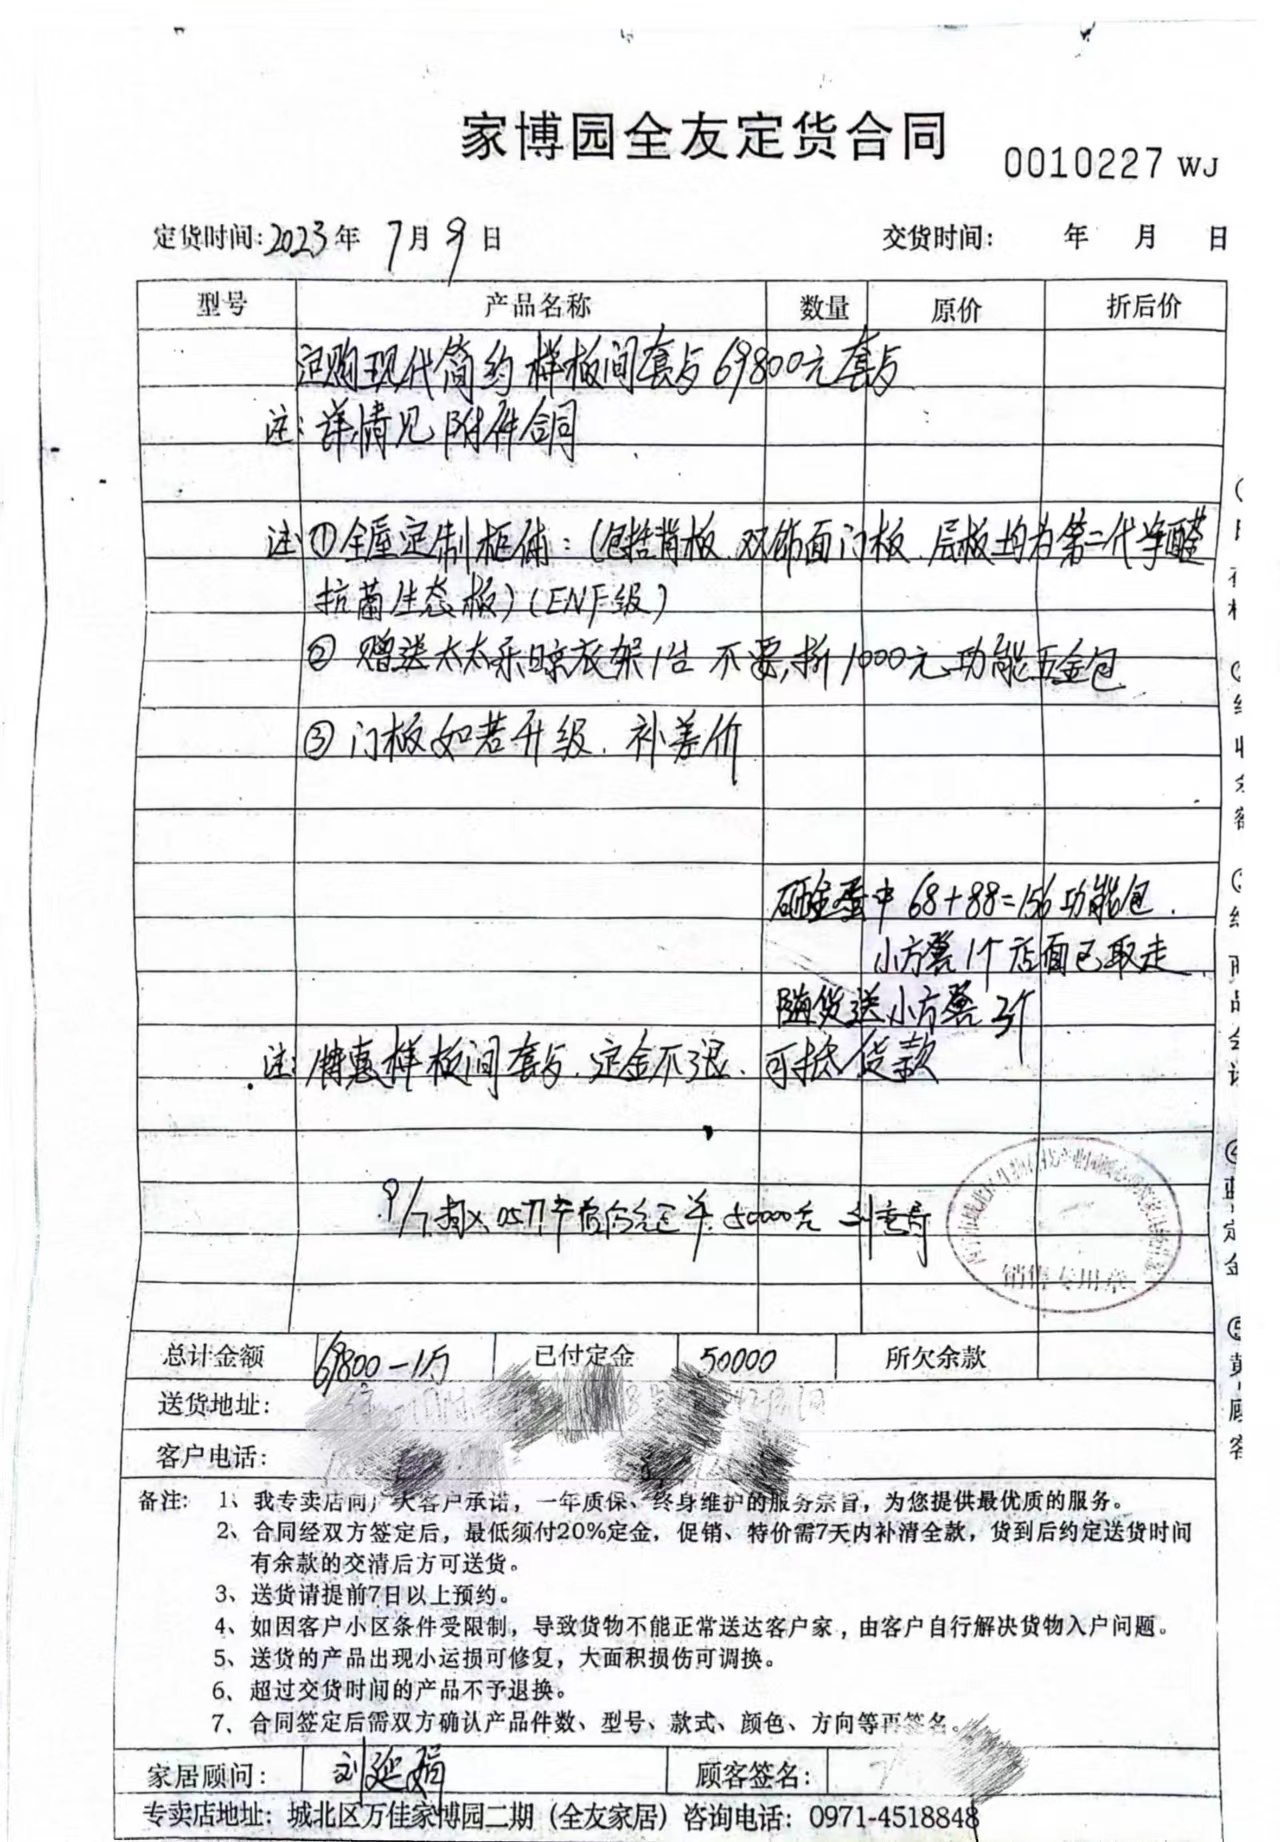 家博园全友定货合同
0010227 WJ
定货时间:2023年 7月 9日 交货时间: 年 月 日
型号 产品名称 数量 原价 折后价
定购现代简约样板间套与69800元套与
注:详情见附件合同
注:①全屋定制柜体:(包括背板.双饰面门板.层板均为第二代净醛
抗菌生态板)(ENF级)
② 赠送太太乐晾衣架1台 不要,折1000元功能五金包
③门板如若升级.补差价
砸金蛋中68+88=156功能包.
小方凳1个店面已取走
随货送小方凳3个
注:特惠样板间套与.定金不退.可抵货款
9/7 50000元
销售专用章
总计金额 69800-1万 已付定金 50000 所欠余款
送货地址:
客户电话:
备注: 1、我专卖店向广大客户承诺，一年质保、终身维护的服务宗旨，为您提供最优质的服务。
2、合同经双方签定后，最低须付20%定金，促销、特价需7天内补清全款，货到后约定送货时间
有余款的交清后方可送货。
3、送货请提前7日以上预约。
4、如因客户小区条件受限制，导致货物不能正常送达客户家，由客户自行解决货物入户问题。
5、送货的产品出现小运损可修复，大面积损伤可调换。
6、超过交货时间的产品不予退换。
7、合同签定后需双方确认产品件数、型号、款式、颜色、方向等再签名。
家居顾问: 刘延娟 顾客签名:
专卖店地址: 城北区万佳家博园二期（全友家居）咨询电话: 0971-4518848